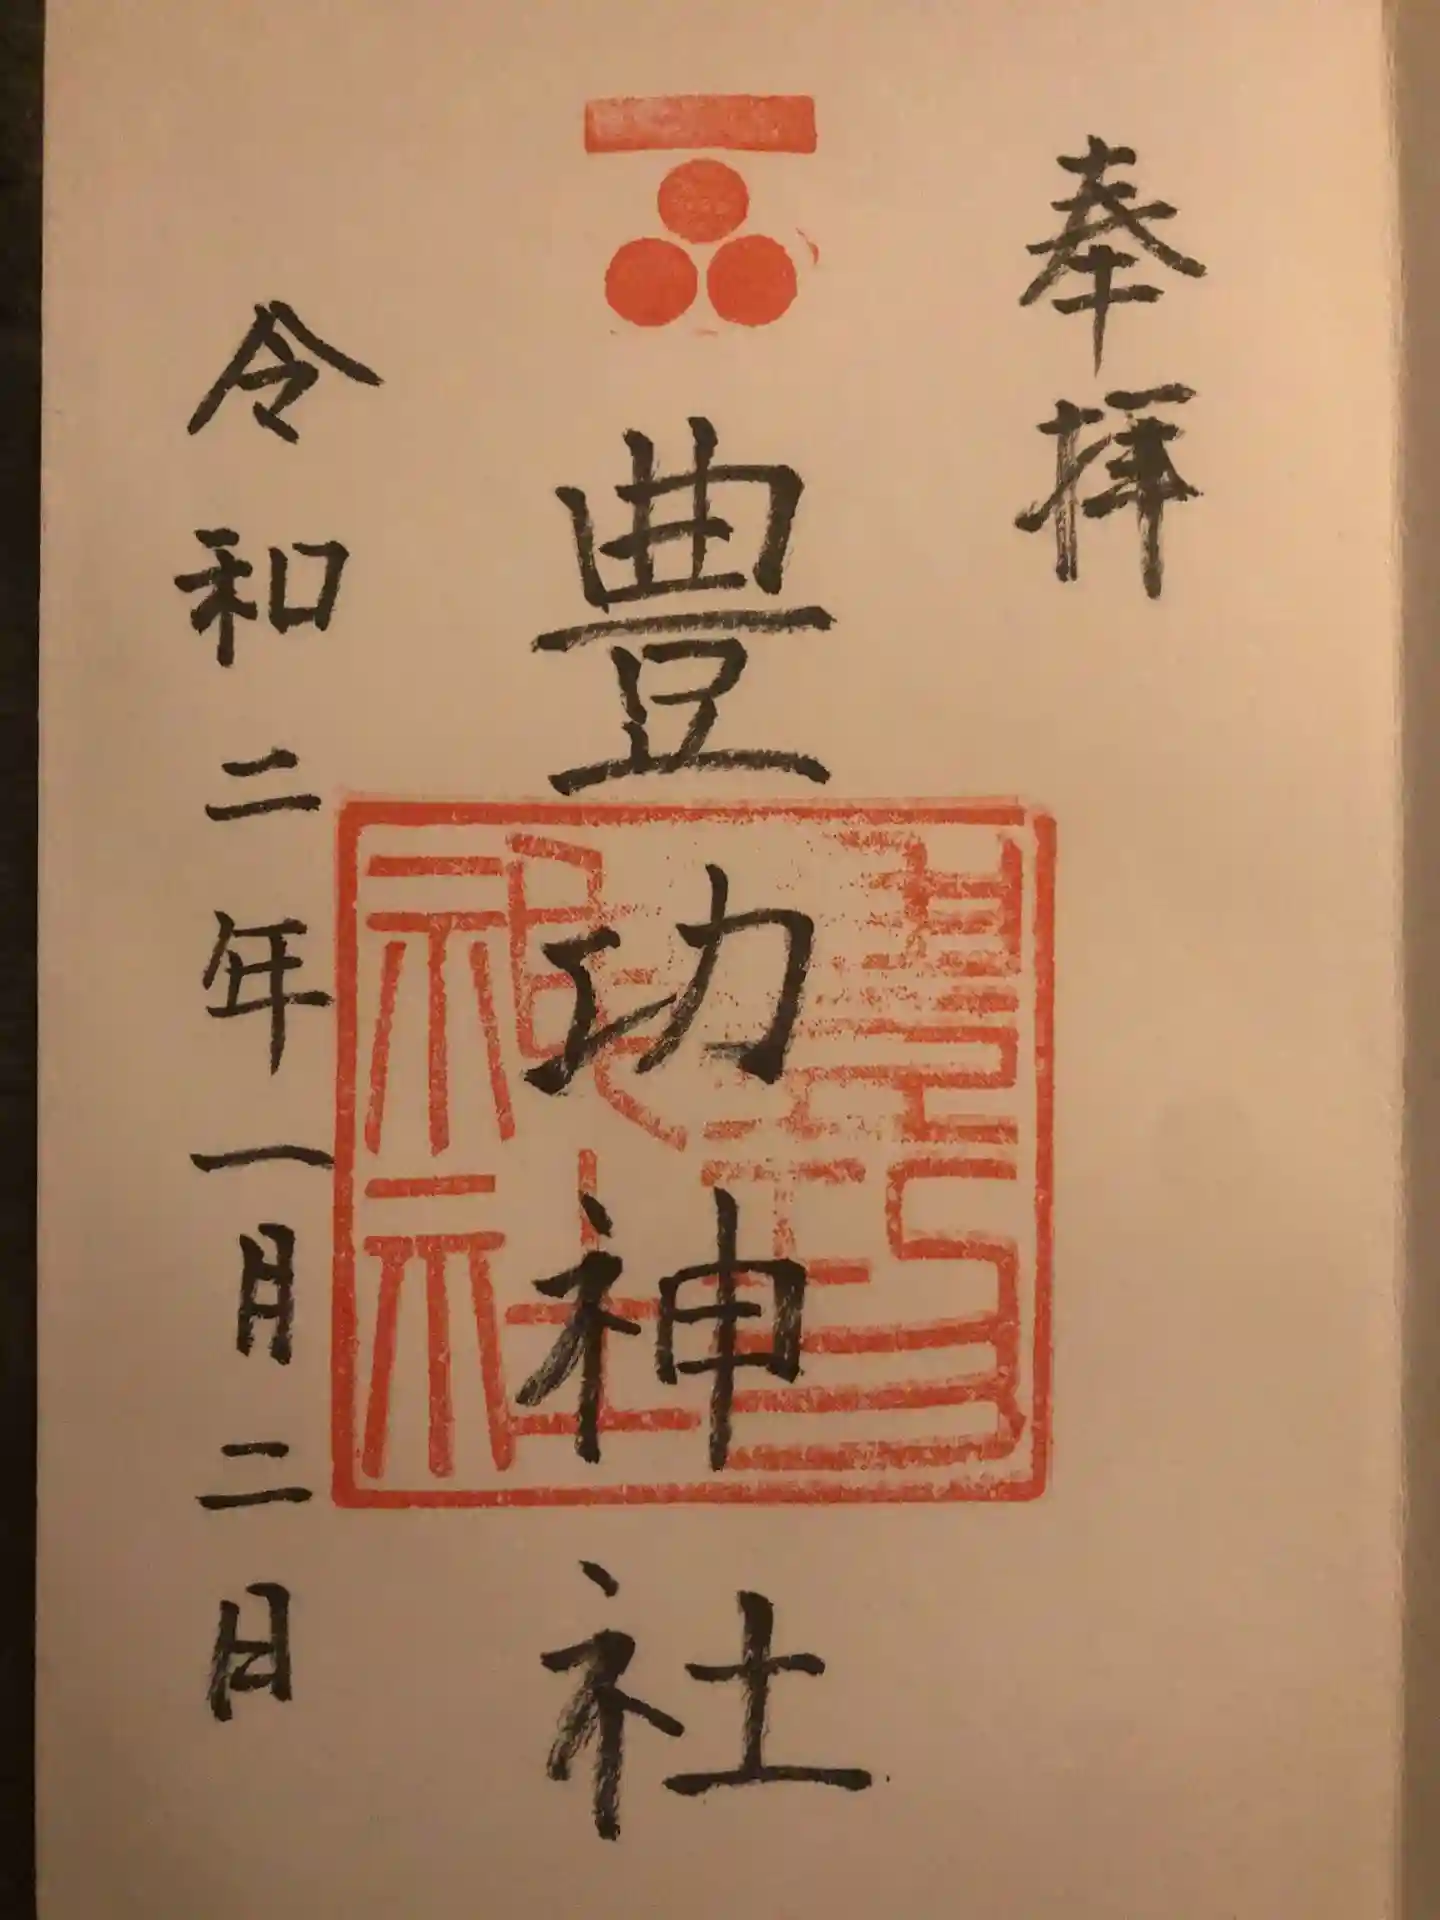 奉拝
豊功神社
豊功神社
令和二年一月二日